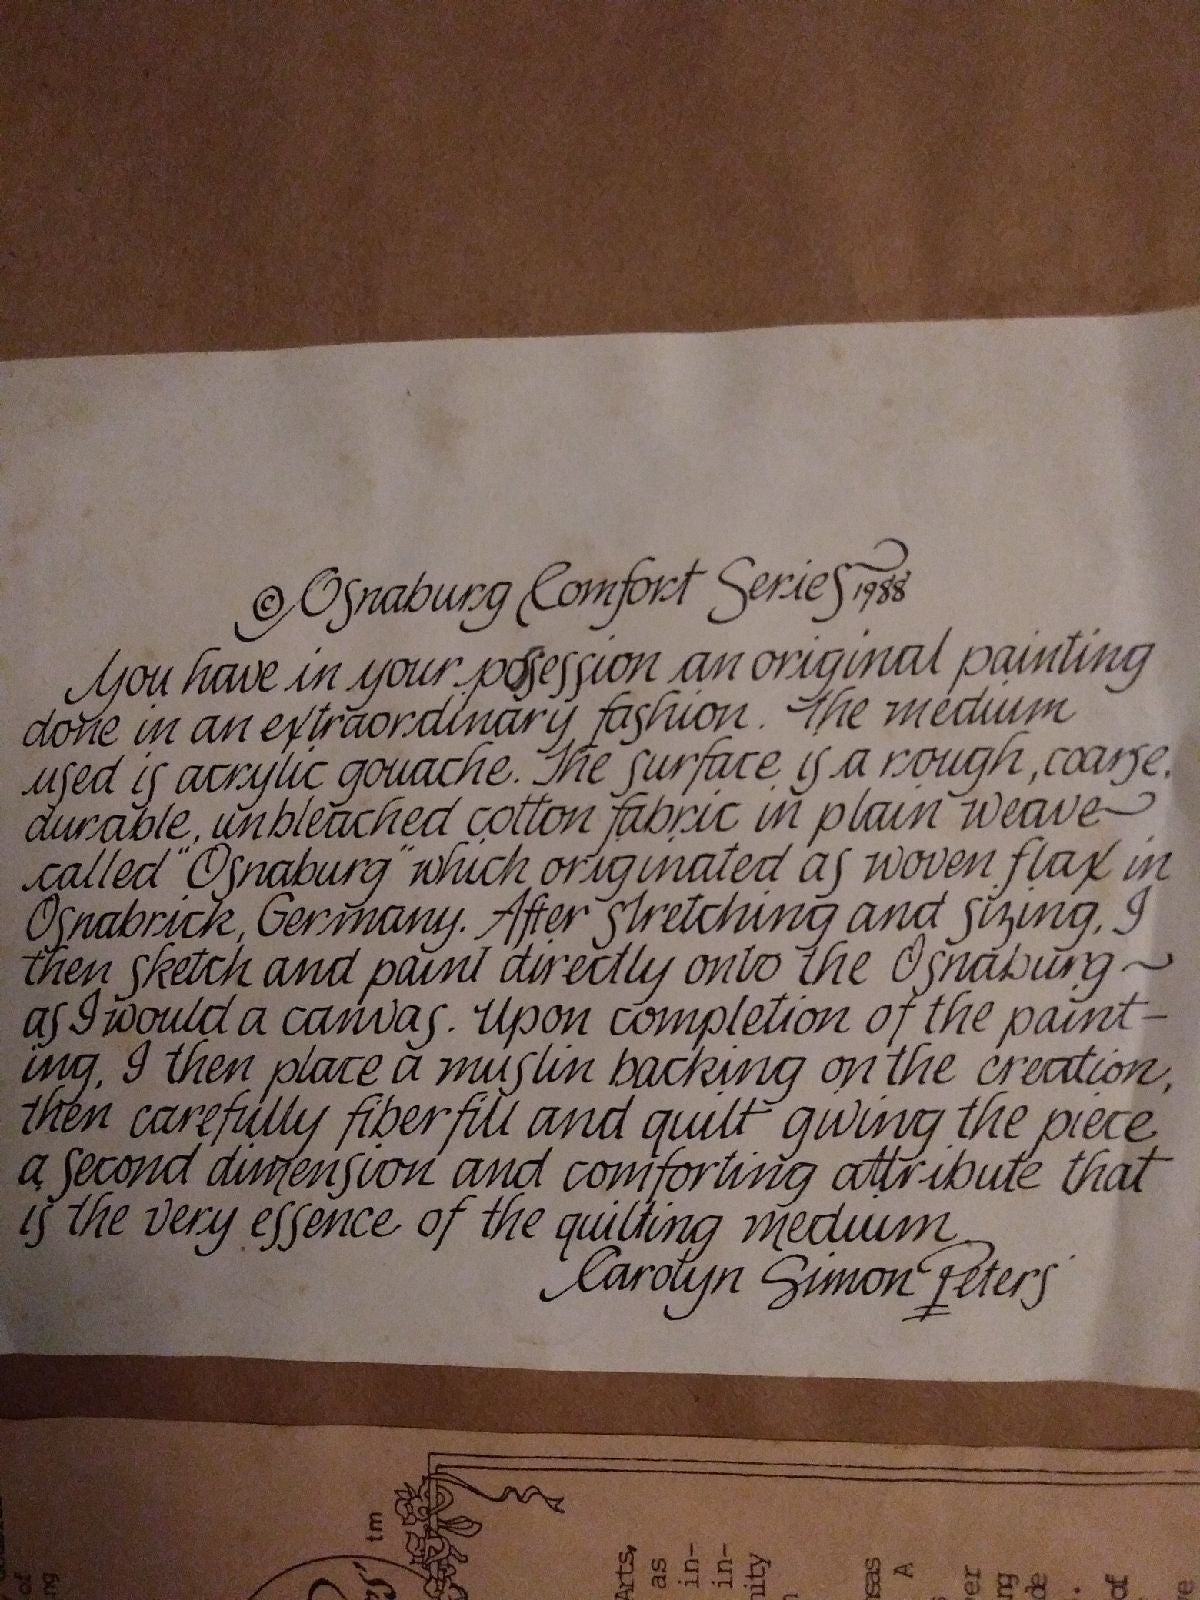 © Osnaburg Comfort Series 1988
You have in your possession an original painting
done in an extraordinary fashion. The medium
used is acrylic gouache. The surface is a rough, coarse,
durable, unbleached cotton fabric in plain weave~
called "Osnaburg" which originated as woven flax in
Osnabrick, Germany. After stretching and sizing, I
then sketch and paint directly onto the Osnaburg~
as I would a canvas. Upon completion of the paint-
ing, I then place a muslin backing on the creation,
then carefully fiberfill and quilt giving the piece
a second dimension and comforting attribute that
is the very essence of the quilting medium.
Carolyn Simon Peters
tm
Arts,
as
in-
in-
nity
sas
A
er
ng
de
of
of
ng